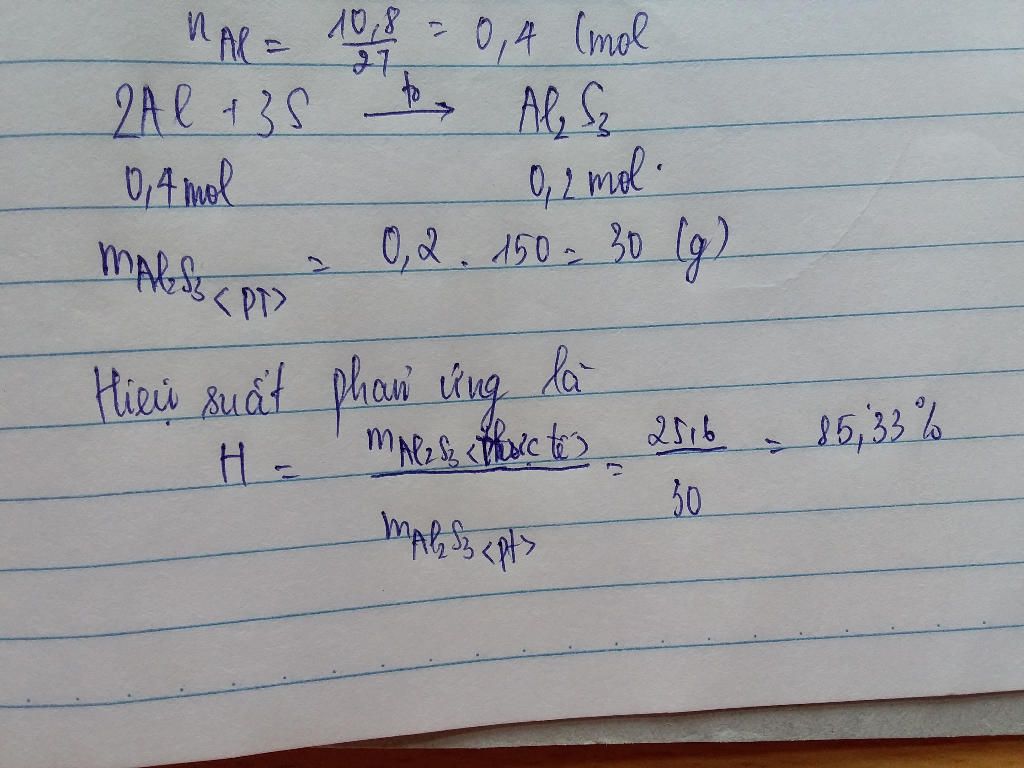 nAl = 10,8/27 = 0,4 (mol
2Al + 3S →(to) Al2S3
0,4 mol 0,2 mol.
mAl2S3 <PT> = 0,2 . 150 = 30 (g)
Hiệu suất phản ứng là
H = mAl2S3 <thực tế> / mAl2S3 <pt> = 25,6/30 = 85,33%